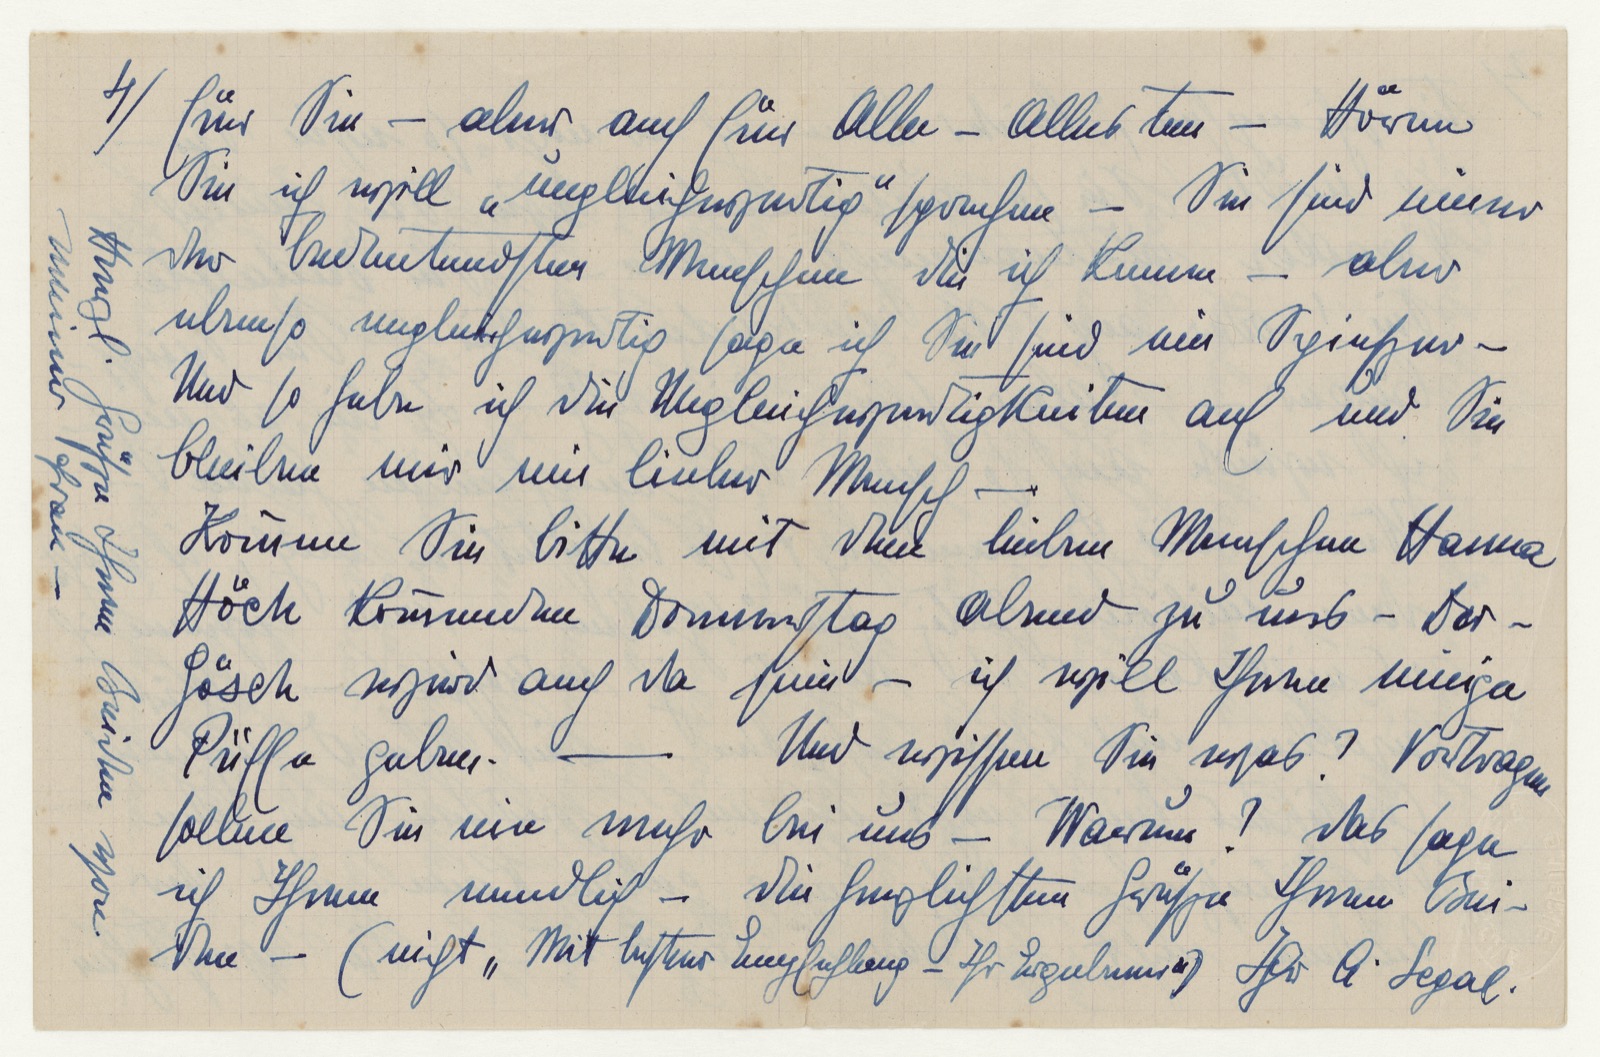 4/ für Sie – aber auch für Alle – Alles tun – Hören
Sie ich will „ungleichwertig“ sprechen – Sie sind einer
der bedeutendsten Menschen die ich kenne – aber
ebenso ungleichwertig sage ich Sie sind ein Spiesser –
Und so hebe ich die Ungleichwertigkeiten auf und Sie
bleiben mir ein lieber Mensch —.
Kom̄en Sie bitte mit dem lieben Menschen Hanna
Höch kom̄enden Donnerstag Abend zu uns – Der –
Gösch wird auch da sein – ich will Ihnen einige
Püffe geben. — Und wissen Sie was? Vortragen
sollen Sie nie mehr bei uns – Warum? das sage
ich Ihnen mündlich – die herzlichsten Grüsse Ihnen Bei-
den – (nicht „Mit bester Empfehlung – Ihr Ergebener“) Ihr A. Segal.
Herzl. Grüsse Ihnen Beiden von
meiner Frau –